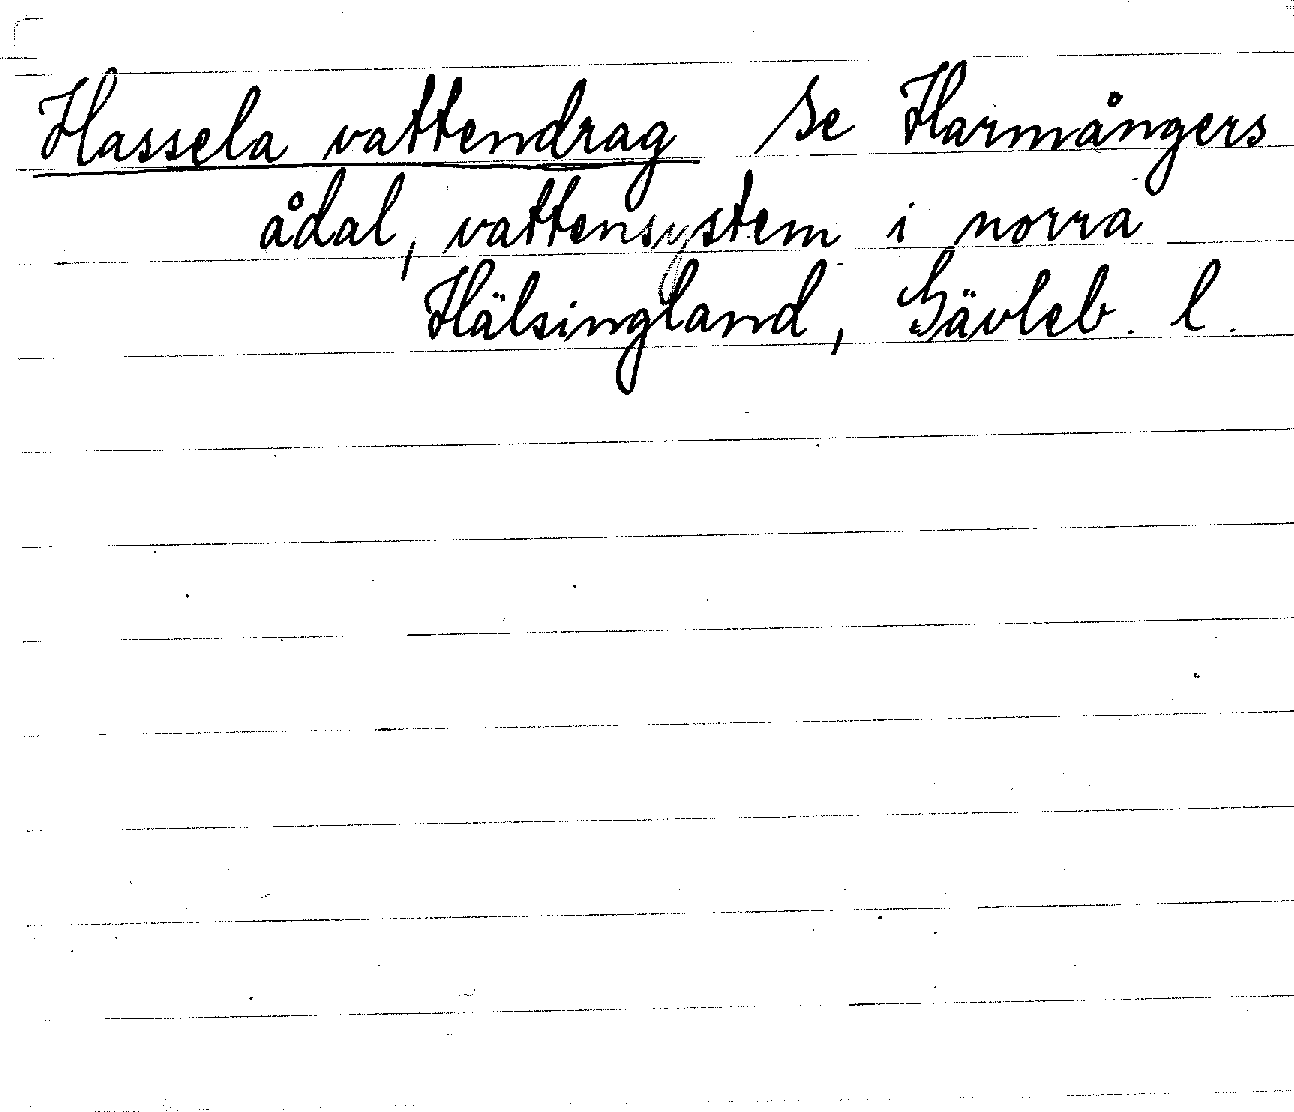 Hassela vattendrag se Harmångers
ådal, vattensystem i norra
Hälsingland, Gävleb. l.